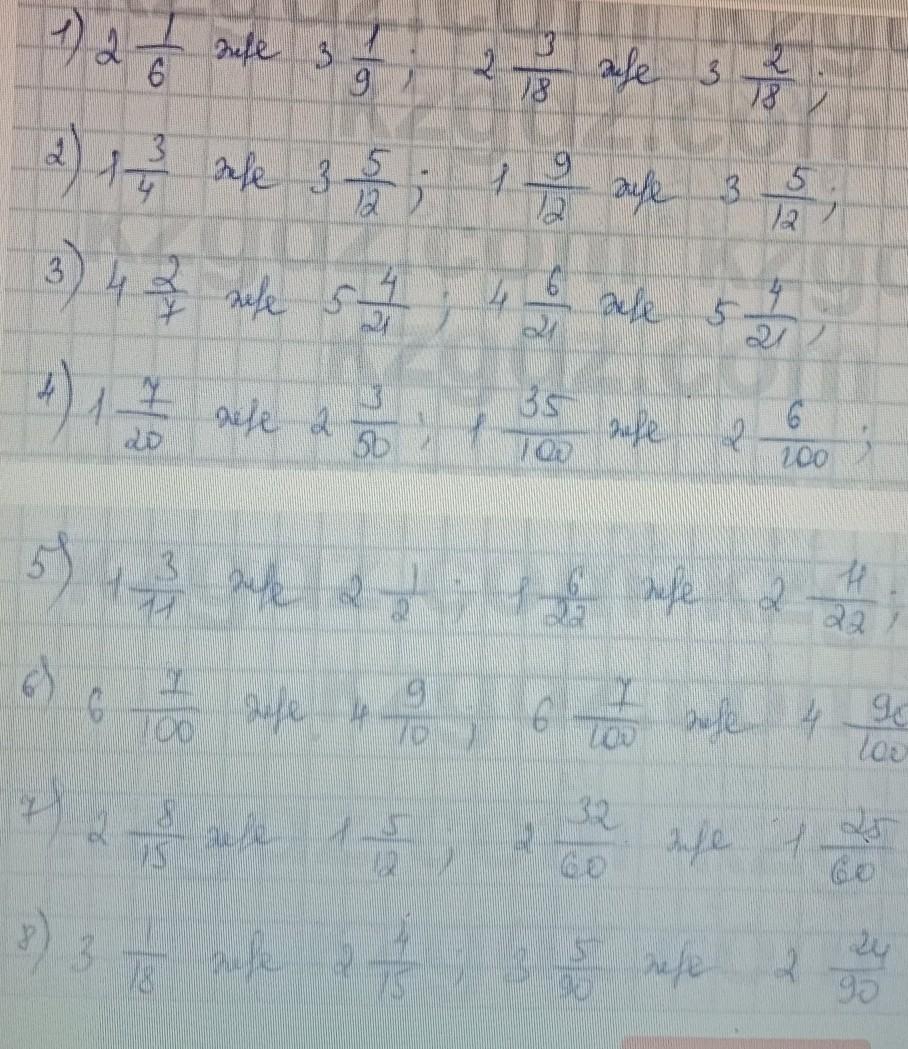 1) 2 1/6 және 3 1/9; 2 3/18 және 3 2/18;
2) 1 3/4 және 3 5/12; 1 9/12 және 3 5/12;
3) 4 2/7 және 5 4/21; 4 6/21 және 5 4/21;
4) 1 7/20 және 2 3/50; 1 35/100 және 2 6/100;
5) 1 3/11 және 2 1/2; 1 6/22 және 2 11/22;
6) 6 7/100 және 4 9/10; 6 7/100 және 4 90/100
7) 2 8/15 және 1 5/12; 2 32/60 және 1 25/60
8) 3 1/18 және 2 4/15; 3 5/90 және 2 24/90